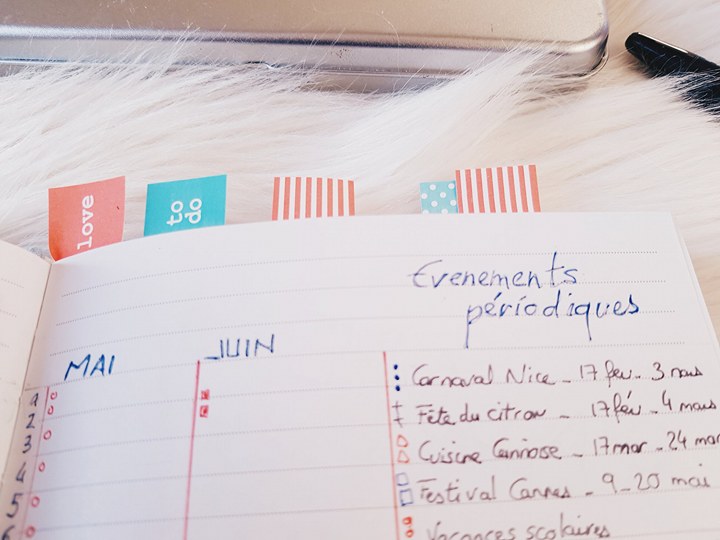 love
to
do
Evenements
périodiques
MAI
JUIN
1
2
3
4
5
6
Carnaval Nice - 17 fev - 3 mars
Fête du citron - 17 fév - 4 mars
Cuisine Cannoise - 17 mar - 24 mar
Festival Cannes - 9 - 20 mai
Vacances scolaires